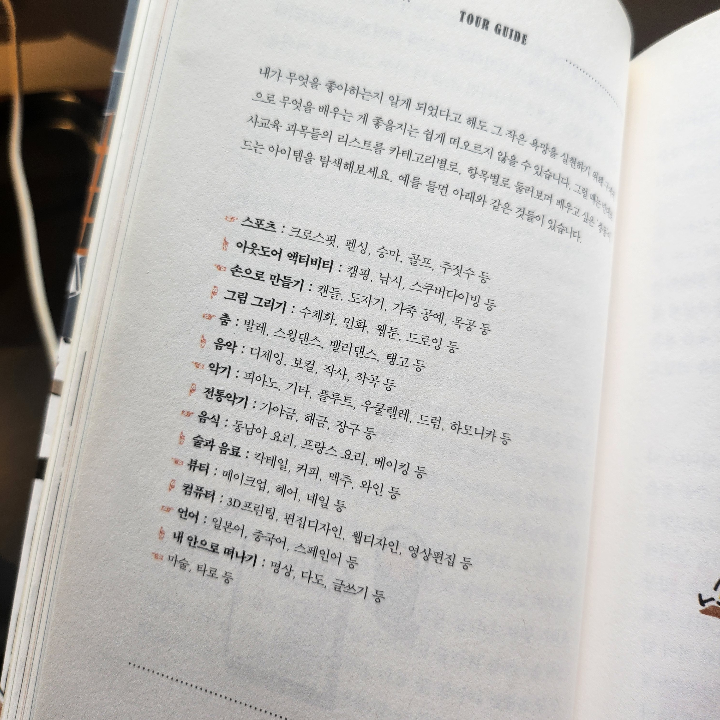 TOUR GUIDE
내가 무엇을 좋아하는지 알게 되었다고 해도 그 작은 욕망을 실현하기 위해
으로 무엇을 배우는 게 좋을지는 쉽게 떠오르지 않을 수 있습니다. 그럴 때는
사교육 과목들의 리스트를 카테고리별로, 항목별로 둘러보며 배우고 싶은
드는 아이템을 탐색해보세요. 예를 들면 아래와 같은 것들이 있습니다.
스포츠 : 크로스핏, 펜싱, 승마, 골프, 주짓수 등
아웃도어 액티비티 : 캠핑, 낚시, 스쿠버다이빙 등
손으로 만들기 : 캔들, 도자기, 가죽 공예, 목공 등
그림 그리기 : 수채화, 민화, 웹툰, 드로잉 등
춤 : 발레, 스윙댄스, 벨리댄스, 탱고 등
음악 : 디제잉, 보컬, 작사, 작곡 등
악기 : 피아노, 기타, 플루트, 우쿨렐레, 드럼, 하모니카 등
전통악기 : 가야금, 해금, 장구 등
음식 : 동남아 요리, 프랑스 요리, 베이킹 등
술과 음료 : 칵테일, 커피, 맥주, 와인 등
뷰티 : 메이크업, 헤어, 네일 등
컴퓨터 : 3D프린팅, 편집디자인, 웹디자인, 영상편집 등
언어 : 일본어, 중국어, 스페인어 등
내 안으로 떠나기 : 명상, 다도, 글쓰기 등
마술, 타로 등